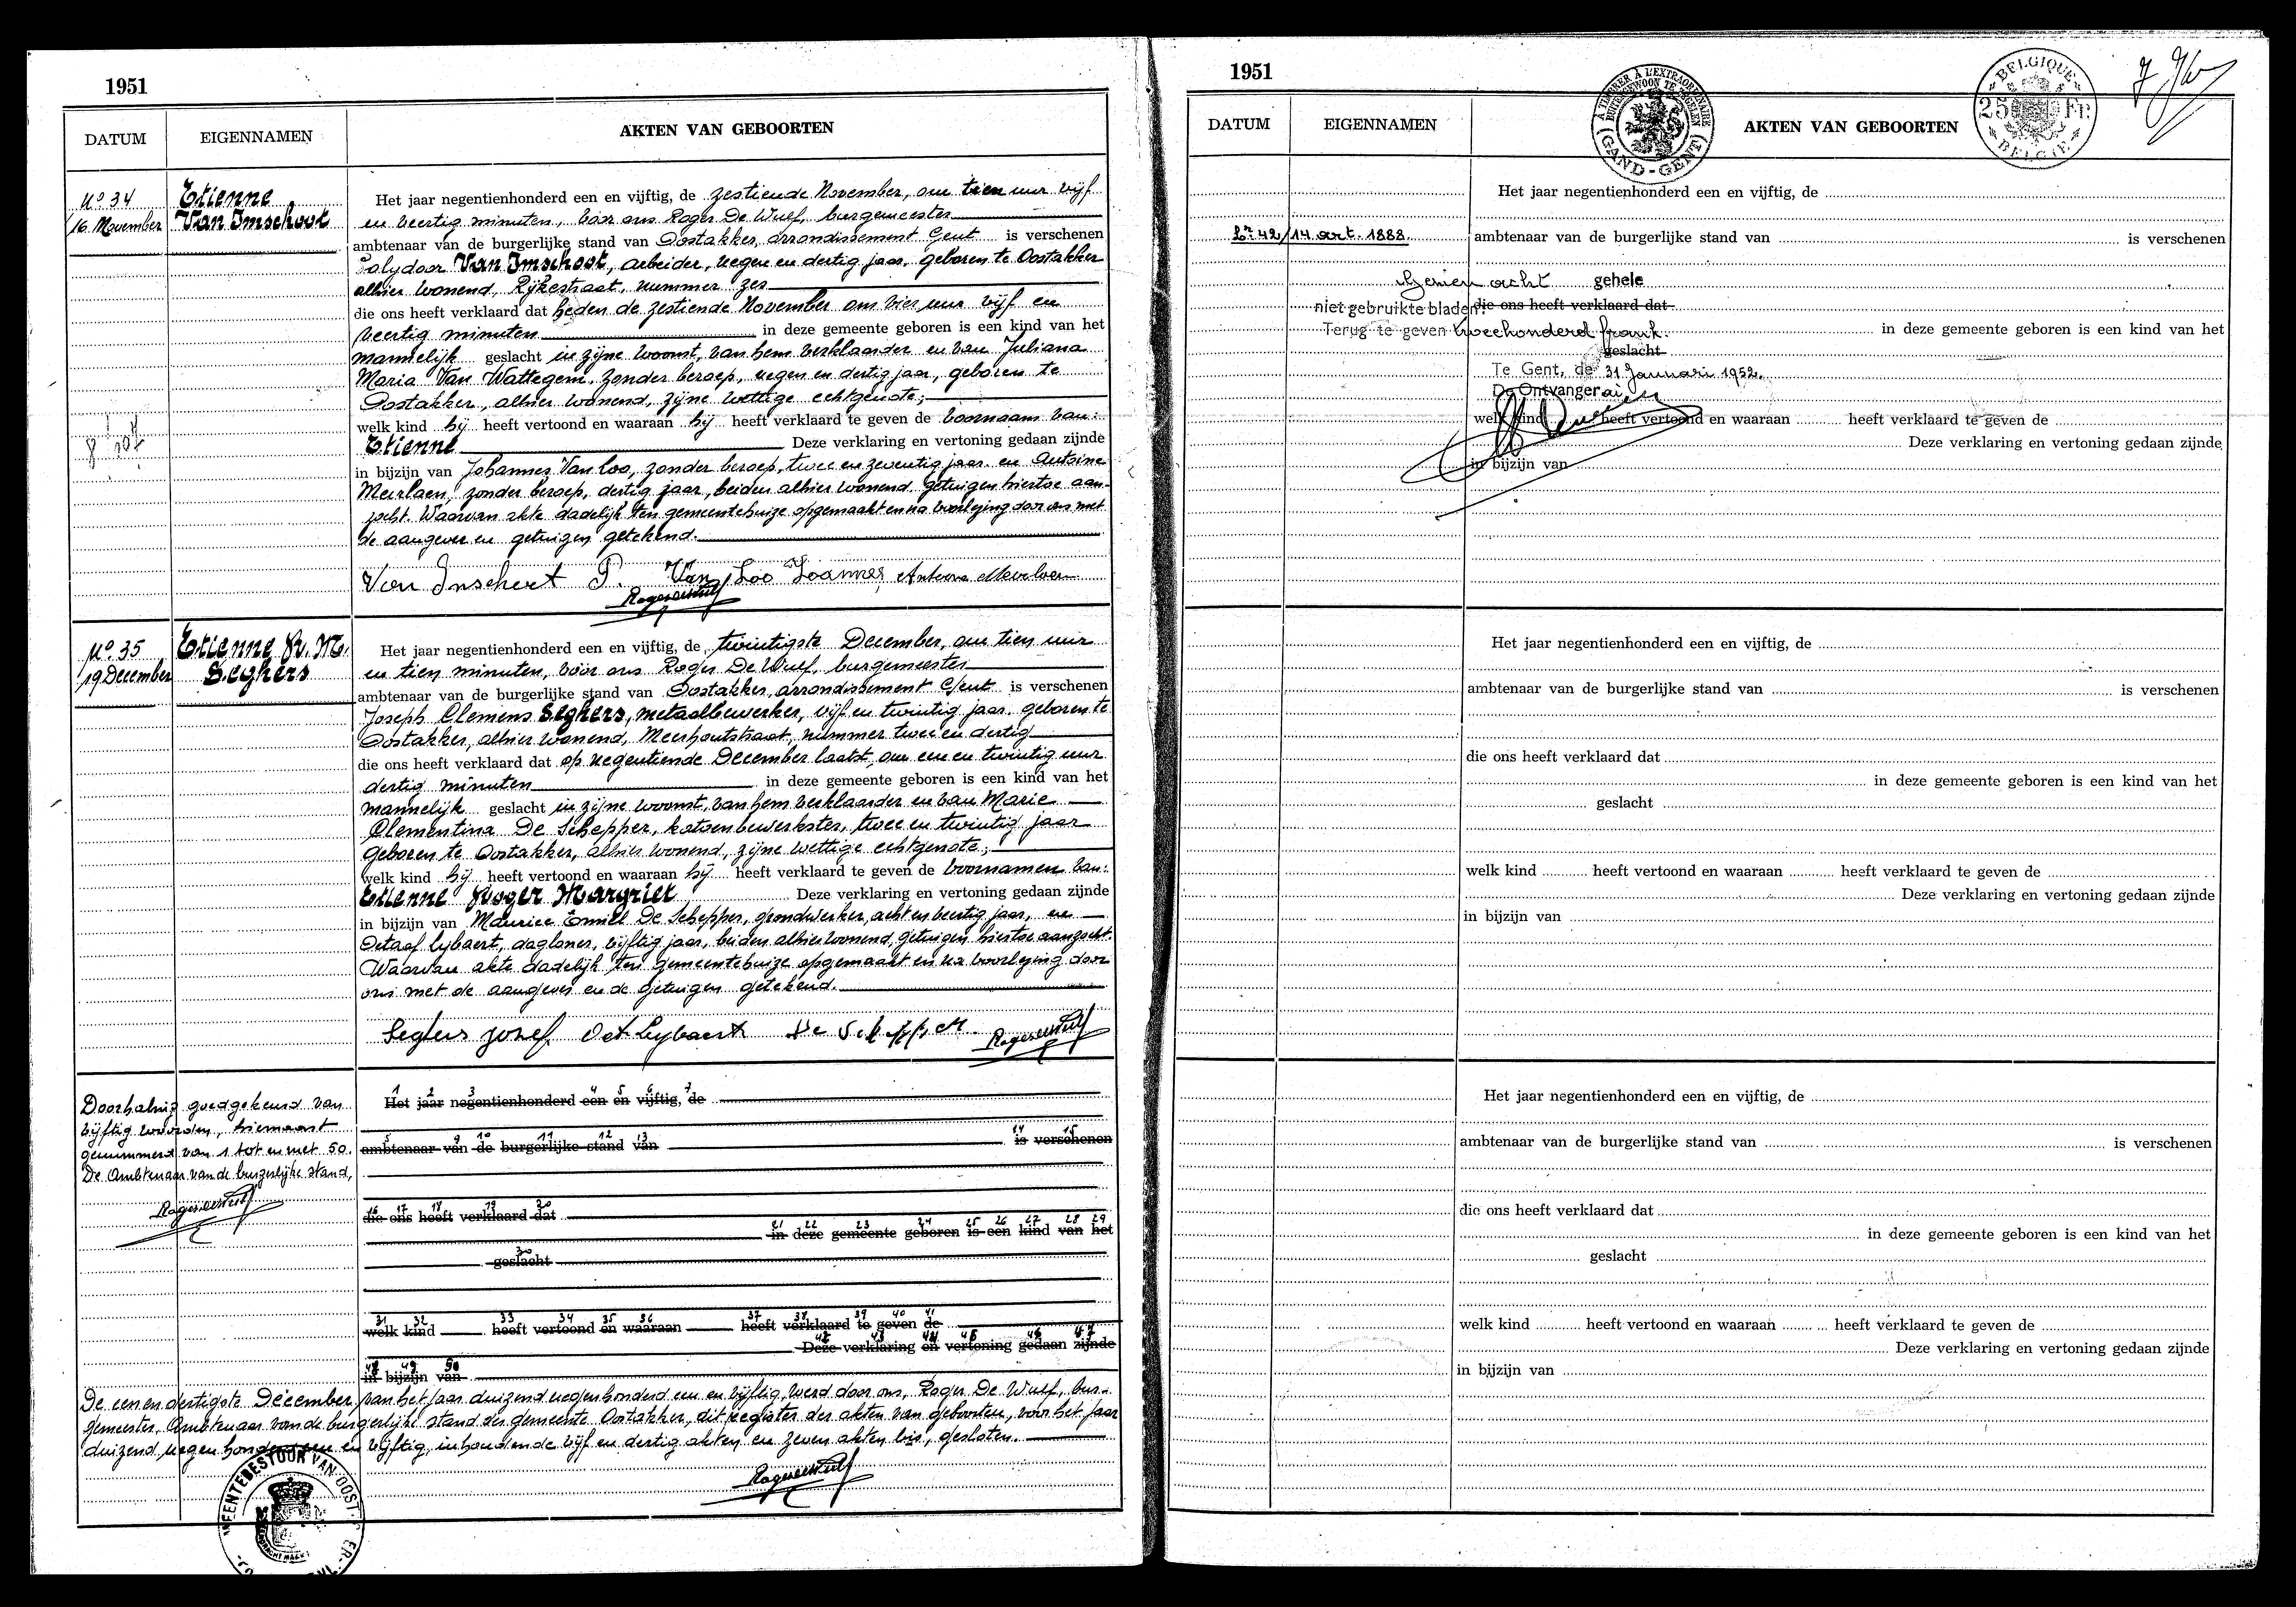 1951
DATUM
EIGENNAMEN
AKTEN VAN GEBOORTEN
No 34
16 November
Etienne
Van Imschoot
Het jaar negentienhonderd een en vijftig, de zestiende November, om tien uur vijf
en veertig minuten, vóór ons Roger De Wulf, burgemeester
ambtenaar van de burgerlijke stand van Oostakker, arrondissement Gent is verschenen
Polydoor Van Imschoot, arbeider, negen en dertig jaar, geboren te Oostakker
alhier wonend, Rijkestraat, nummer zes
die ons heeft verklaard dat heden de zestiende November om vier uur vijf en
veertig minuten in deze gemeente geboren is een kind van het
mannelijk geslacht in zijne woonst, van hem verklaarder en van Juliana
Maria Van Wattegem, zonder beroep, negen en dertig jaar, geboren te
Oostakker, alhier wonend, zijne wettige echtgenote;
welk kind hij heeft vertoond en waaraan hij heeft verklaard te geven de voornaam van:
Etienne Deze verklaring en vertoning gedaan zijnde
in bijzijn van Johannes Van Loo, zonder beroep, twee en zeventig jaar en Antoine
Meerlaen, zonder beroep, dertig jaar, beiden alhier wonend, getuigen hiertoe aan-
zocht. Waarvan akte dadelijk ten gemeentehuize opgemaakt en na voorlezing door ons met
de aangever en getuigen getekend.
Van Imschoot P. Van Loo Joannes Antoine Meerlaen
Roger De Wulf
No 35
19 December
Etienne R. M.
Seghers
Het jaar negentienhonderd een en vijftig, de twintigste December, om tien uur
en tien minuten, vóór ons Roger De Wulf, burgemeester
ambtenaar van de burgerlijke stand van Oostakker, arrondissement Gent is verschenen
Joseph Clemens Seghers, metaalbewerker, vijf en twintig jaar, geboren te
Oostakker, alhier wonend, Meerhoutstraat, nummer twee en dertig
die ons heeft verklaard dat op negentiende December laatst, om een en twintig uur
dertig minuten in deze gemeente geboren is een kind van het
mannelijk geslacht in zijne woonst, van hem verklaarder en van Marie
Clementina De Schepper, katoenbewerkster, twee en twintig jaar
geboren te Oostakker, alhier wonend, zijne wettige echtgenote;
welk kind hij heeft vertoond en waaraan hij heeft verklaard te geven de voornamen van:
Etienne Roger Margriet Deze verklaring en vertoning gedaan zijnde
in bijzijn van Maurice Emiel De Schepper, grondwerker, acht en veertig jaar, en
Octaaf Lybaert, dagloner, vijftig jaar, beiden alhier wonend, getuigen hiertoe aangezocht.
Waarvan akte dadelijk ten gemeentehuize opgemaakt en na voorlezing door
ons met de aangever en de getuigen getekend.
Seghers Jozef Oct Lybaert De Schepper Roger De Wulf
Doorhaling goedgekeurd van
vijftig woorden, hiernaast
genummerd van 1 tot en met 50.
De Ambtenaar van de burgerlijke stand,
Roger De Wulf
1 2 3 4 5 6 7
Het jaar negentienhonderd een en vijftig, de
8 9 10 11 12 13 14 15
ambtenaar van de burgerlijke stand van is verschenen
16 17 18 19 20
die ons heeft verklaard dat
21 22 23 24 25 26 27 28 29
in deze gemeente geboren is een kind van het
30
geslacht
31 32 33 34 35 36 37 38 39 40 41
welk kind heeft vertoond en waaraan heeft verklaard te geven de
42 43 44 45 46 47
Deze verklaring en vertoning gedaan zijnde
48 49 50
in bijzijn van
De een en dertigste December van het jaar duizend negenhonderd een en vijftig, werd door ons, Roger De Wulf, bur-
gemeester, Ambtenaar van de burgerlijke stand der gemeente Oostakker, dit register der akten van geboorten, voor het jaar
duizend negen honderd een en vijftig, inhoudende vijf en dertig akten en zeven akten bis, gesloten.
Roger De Wulf
1951
A TIMBRER A L'EXTRAORDINAIRE
BUITENGEWOON TE ZEGELEN
GAND-GENT
BELGIQUE
25 Fr.
BELGIE
7
DATUM
EIGENNAMEN
AKTEN VAN GEBOORTEN
Het jaar negentienhonderd een en vijftig, de
Lr 42/14 art. 1888.
ambtenaar van de burgerlijke stand van is verschenen
Gezien acht gehele
niet gebruikte bladen.
die ons heeft verklaard dat
Terug te geven tweehonderd frank.
in deze gemeente geboren is een kind van het
geslacht
Te Gent, de 31 Januari 1952.
De Ontvanger ai
welk kind heeft vertoond en waaraan heeft verklaard te geven de
Deze verklaring en vertoning gedaan zijnde
in bijzijn van
Het jaar negentienhonderd een en vijftig, de
ambtenaar van de burgerlijke stand van is verschenen
die ons heeft verklaard dat
in deze gemeente geboren is een kind van het
geslacht
welk kind heeft vertoond en waaraan heeft verklaard te geven de
Deze verklaring en vertoning gedaan zijnde
in bijzijn van
Het jaar negentienhonderd een en vijftig, de
ambtenaar van de burgerlijke stand van is verschenen
die ons heeft verklaard dat
in deze gemeente geboren is een kind van het
geslacht
welk kind heeft vertoond en waaraan heeft verklaard te geven de
Deze verklaring en vertoning gedaan zijnde
in bijzijn van